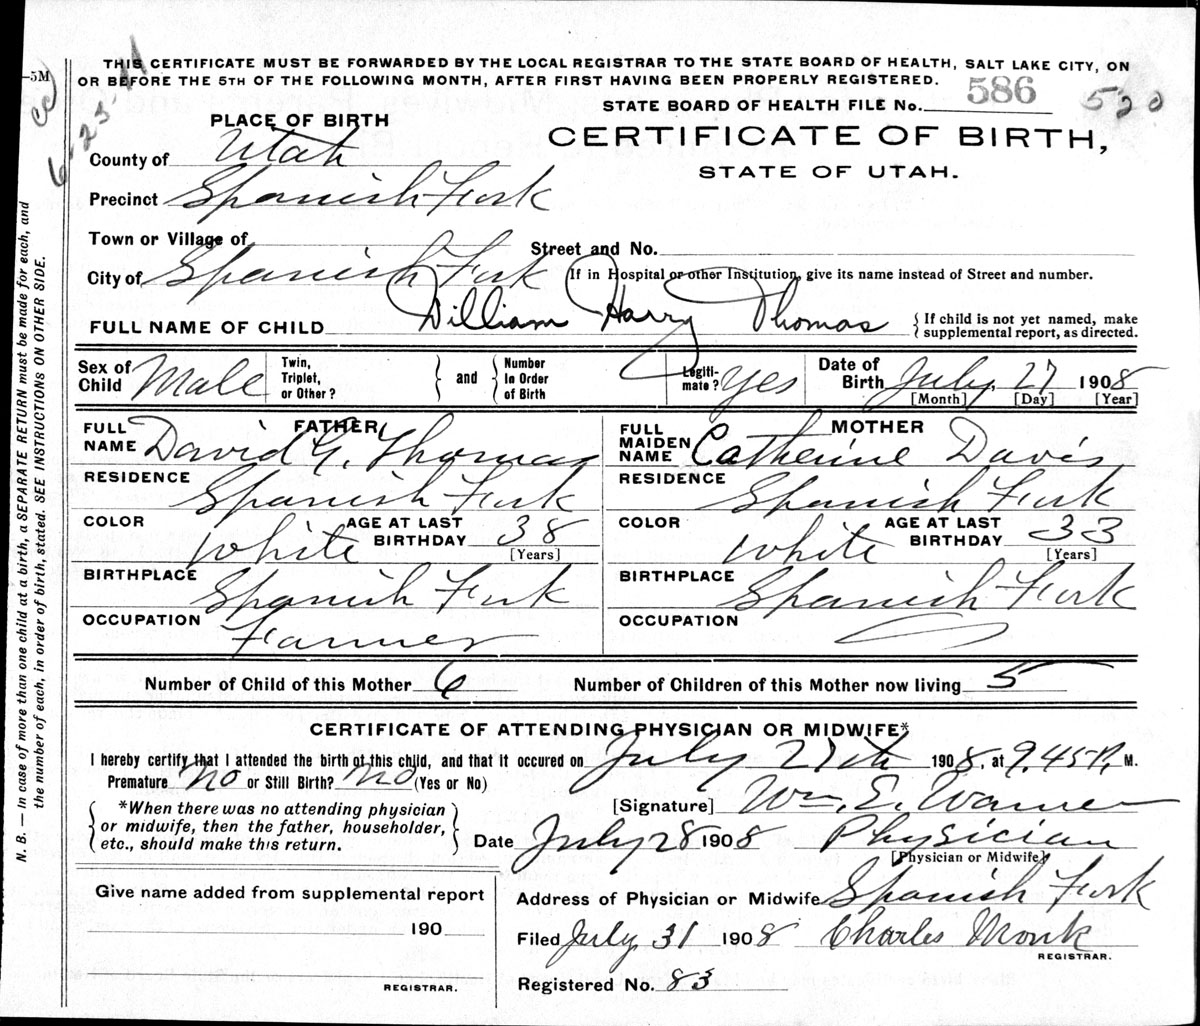 THIS CERTIFICATE MUST BE FORWARDED BY THE LOCAL REGISTRAR TO THE STATE BOARD OF HEALTH, SALT LAKE CITY, ON
OR BEFORE THE 5TH OF THE FOLLOWING MONTH, AFTER FIRST HAVING BEEN PROPERLY REGISTERED.
—5M
6-23-11
STATE BOARD OF HEALTH FILE No. 586
520
PLACE OF BIRTH
CERTIFICATE OF BIRTH,
STATE OF UTAH.
County of Utah
Precinct Spanish Fork
Town or Village of
Street and No.
City of Spanish Fork
If in Hospital or other Institution, give its name instead of Street and number.
FULL NAME OF CHILD William Harry Thomas
{ If child is not yet named, make
supplemental report, as directed.
Sex of Child Male
Twin, Triplet, or Other?
} and {
Number In Order of Birth
Legiti-mate? Yes
Date of Birth July 27 1908
[Month] [Day] [Year]
FATHER
FULL NAME David G. Thomas
RESIDENCE Spanish Fork
COLOR White
AGE AT LAST BIRTHDAY 38
[Years]
BIRTHPLACE Spanish Fork
OCCUPATION Farmer
MOTHER
FULL MAIDEN NAME Catherine Davis
RESIDENCE Spanish Fork
COLOR White
AGE AT LAST BIRTHDAY 33
[Years]
BIRTHPLACE Spanish Fork
OCCUPATION
Number of Child of this Mother 6
Number of Children of this Mother now living 5
CERTIFICATE OF ATTENDING PHYSICIAN OR MIDWIFE*
I hereby certify that I attended the birth of this child, and that it occured on July 27th 1908, at 9.45 P. M.
Premature No or Still Birth? No (Yes or No)
{ *When there was no attending physician
or midwife, then the father, householder,
etc., should make this return. }
[Signature] Wm. E. Warner
Date July 28 1908 Physician
[Physician or Midwife]
Give name added from supplemental report
190
REGISTRAR.
Address of Physician or Midwife Spanish Fork
Filed July 31 1908 Charles Monk
REGISTRAR.
Registered No. 83
N. B. — In case of more than one child at a birth, a SEPARATE RETURN must be made for each, and
the number of each, in order of birth, stated. SEE INSTRUCTIONS ON OTHER SIDE.